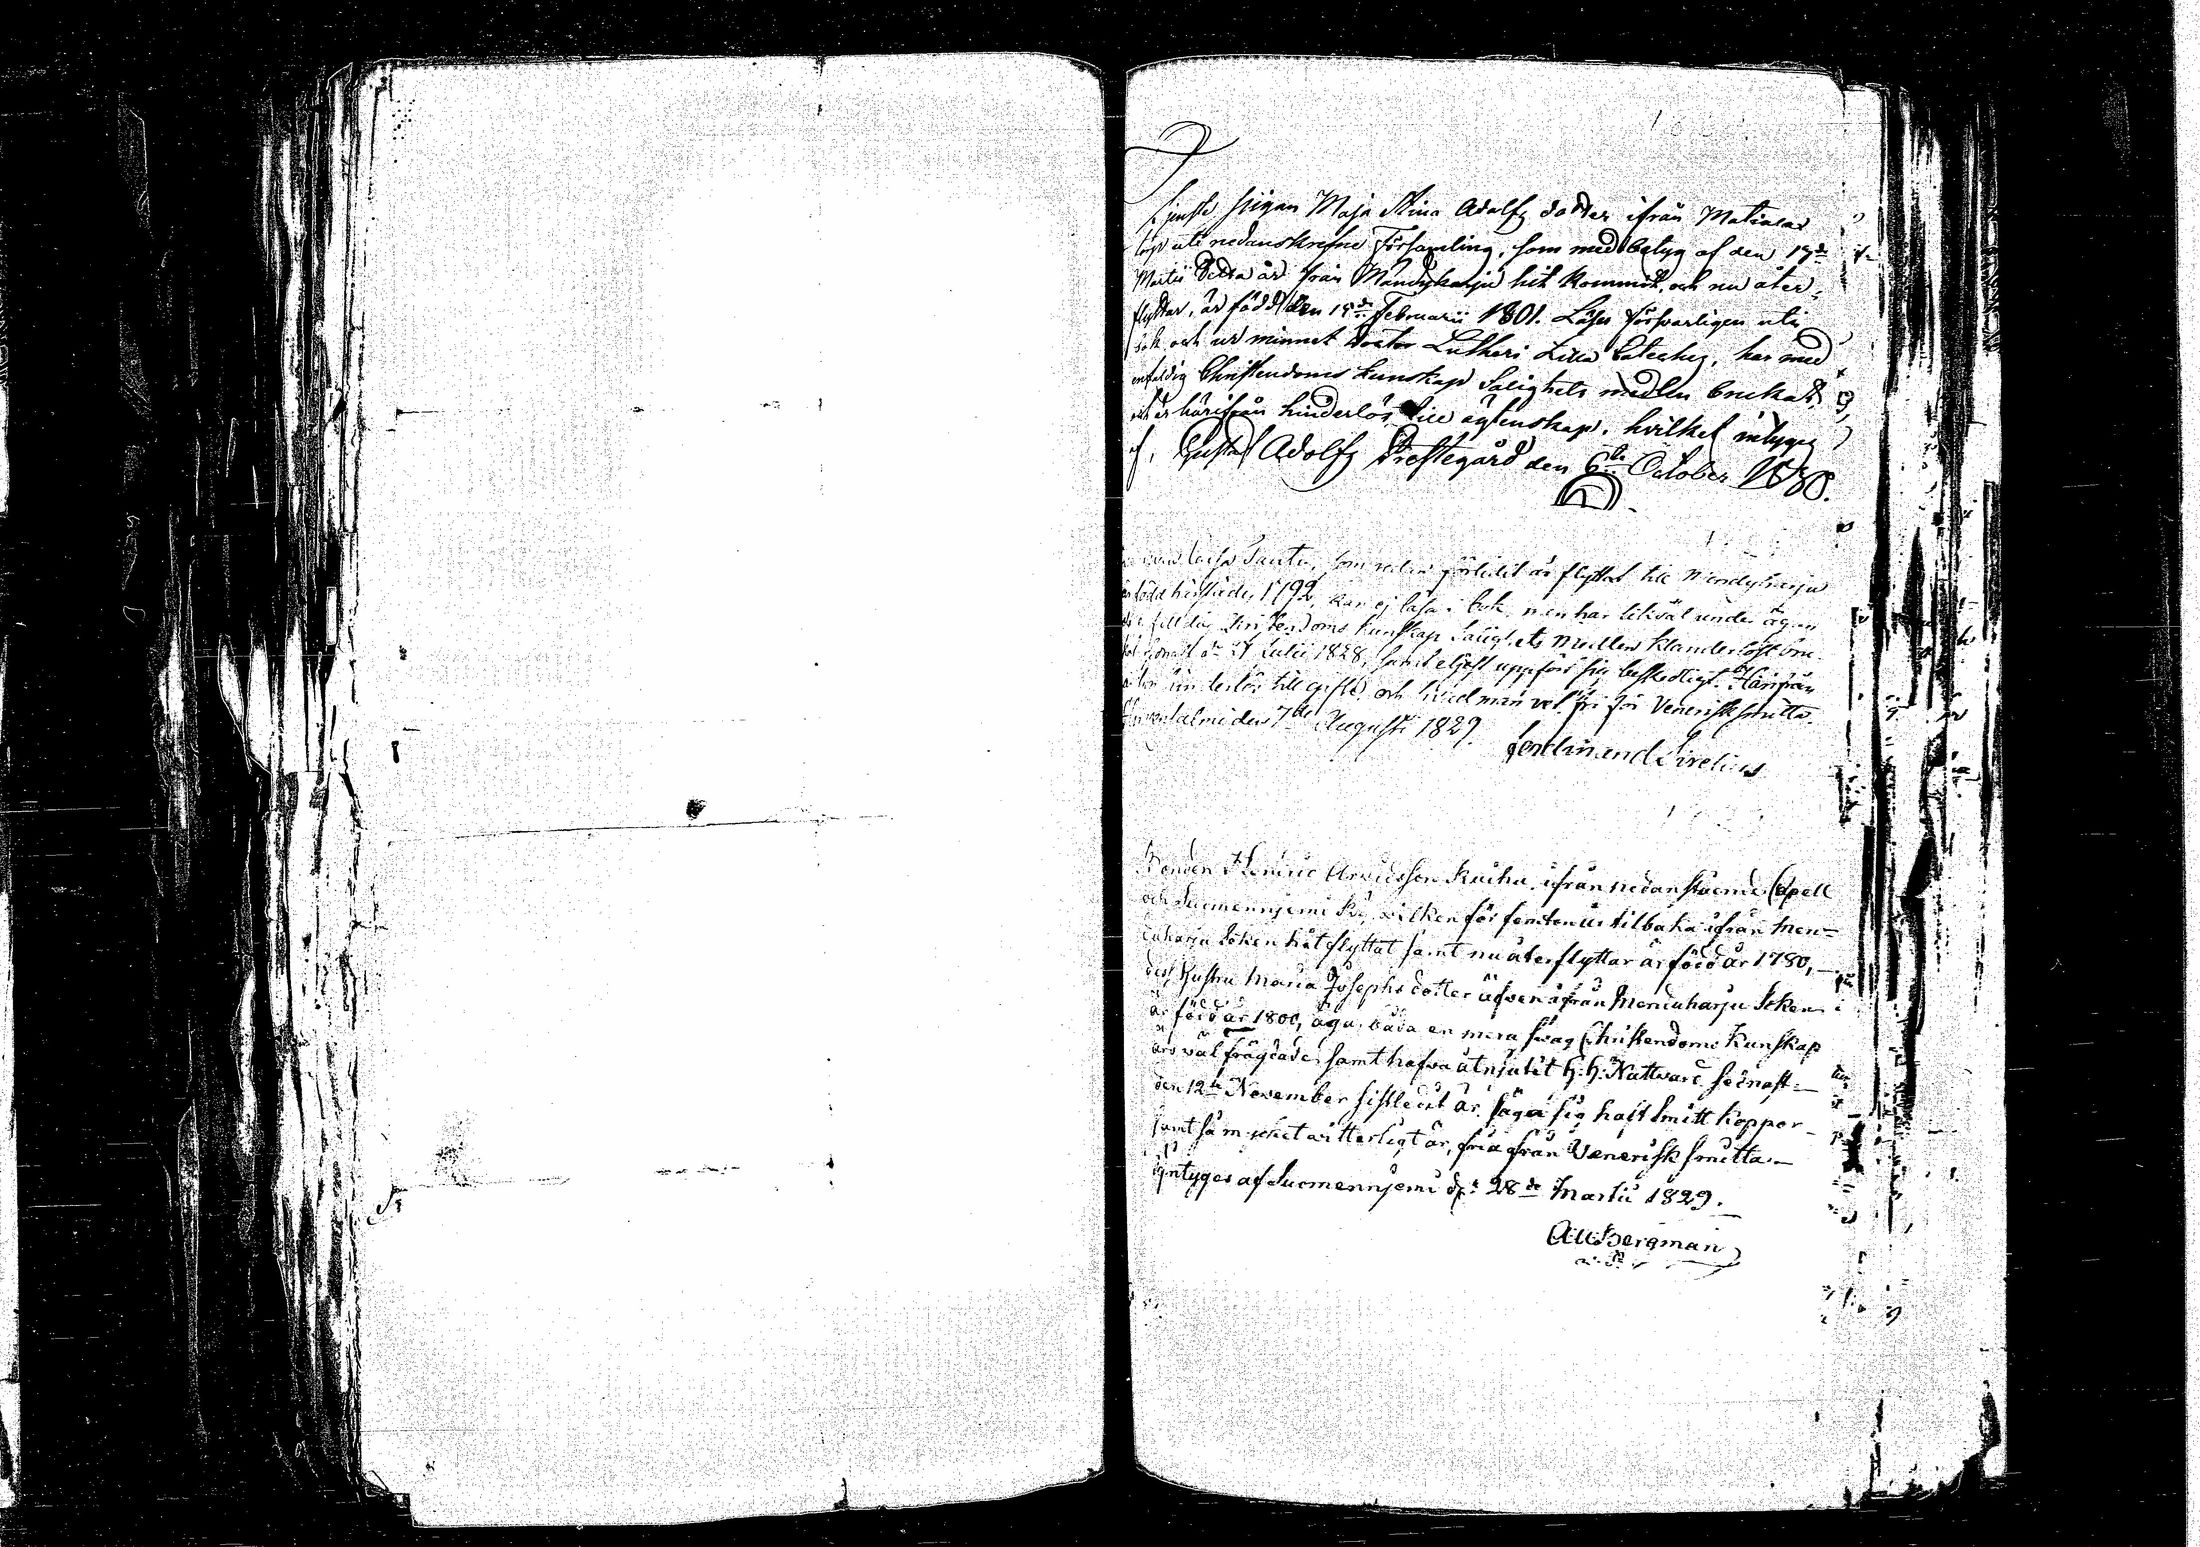 jenste pigan Maja Stina Adolfs dotter ifrån
uti nedanskrefne Församling, som med betyg af den 17de
Martii detta år från Mändyharju hit kommit, och nu åter-
flyttar, är född den 19de Februarii 1801. Läser försvarligen uti
bok och ur minnet Doctor Lutheri Lilla Cateches, har med
enfaldig Christendoms kunskap Salighets medlen brukat,
och är härifrån hinderlös till ägtenskap, hvilket intygas
af, Gustaf Adolfs Prestegård den 6te October 1830.
som redan förledit år flyttat till Mendyharju
är född härstädes 1792, kan ej läsa i bok, men har likväl under ägan
Christendoms kunskap Salighets medlen klanderlöst bru-
Julii 1828, samt eljest uppfört sig beskedligt. Härifrån
hinderlös till gifte, och hvad man vet fri för Venerisk smitta.
den 7de Augusti 1829.
Ferdinand Sirelius
Bonden Henric Arvidsson Kuihu, ifrån nedanstående Capell
och Suomennjemi By, vilken för femton år tilbaka ifrån Men-
duharju Soken hit flyttat samt nu återflyttar är född år 1780,
dess hustru Maria Josephs dotter äfven ifrån Menduharju Soken
är född år 1800, äga båda en mera svag Christendoms Kunskap
äro väl frägdade samt hafva åtnjutit H: H: Nattvard sednast
den 12te November sistledit år, säga sig haft Smitt koppor
samt så m witterligt är, fria från Venerisk smitta.
Intyges af Suomennjemi d. 28de Martii 1829.
And: Bergman